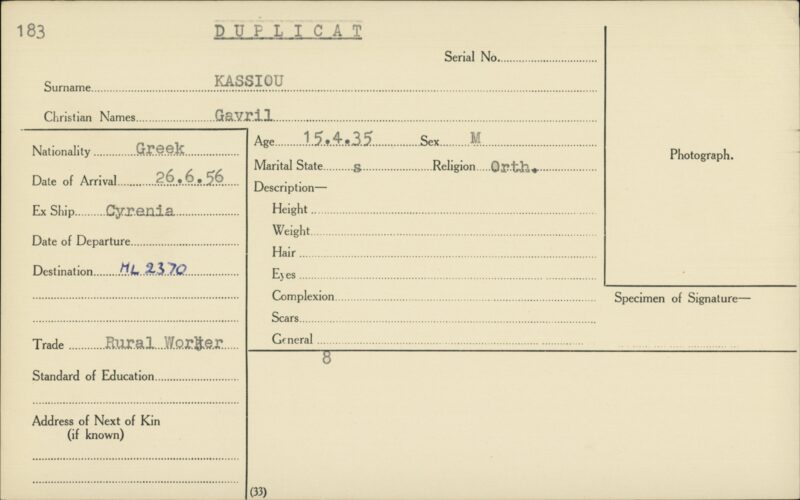 183
DUPLICAT
Serial No.
Surname KASSIOU
Christian Names Gavril
Nationality Greek
Date of Arrival 26.6.56
Ex Ship Cyrenia
Date of Departure
Destination ML 2370
Trade Rural Worker
Standard of Education
Address of Next of Kin
(if known)
Age 15.4.35 Sex M
Marital State s Religion Orth.
Description—
Height
Weight
Hair
Eyes
Complexion
Scars
General
8
(33)
Photograph.
Specimen of Signature—